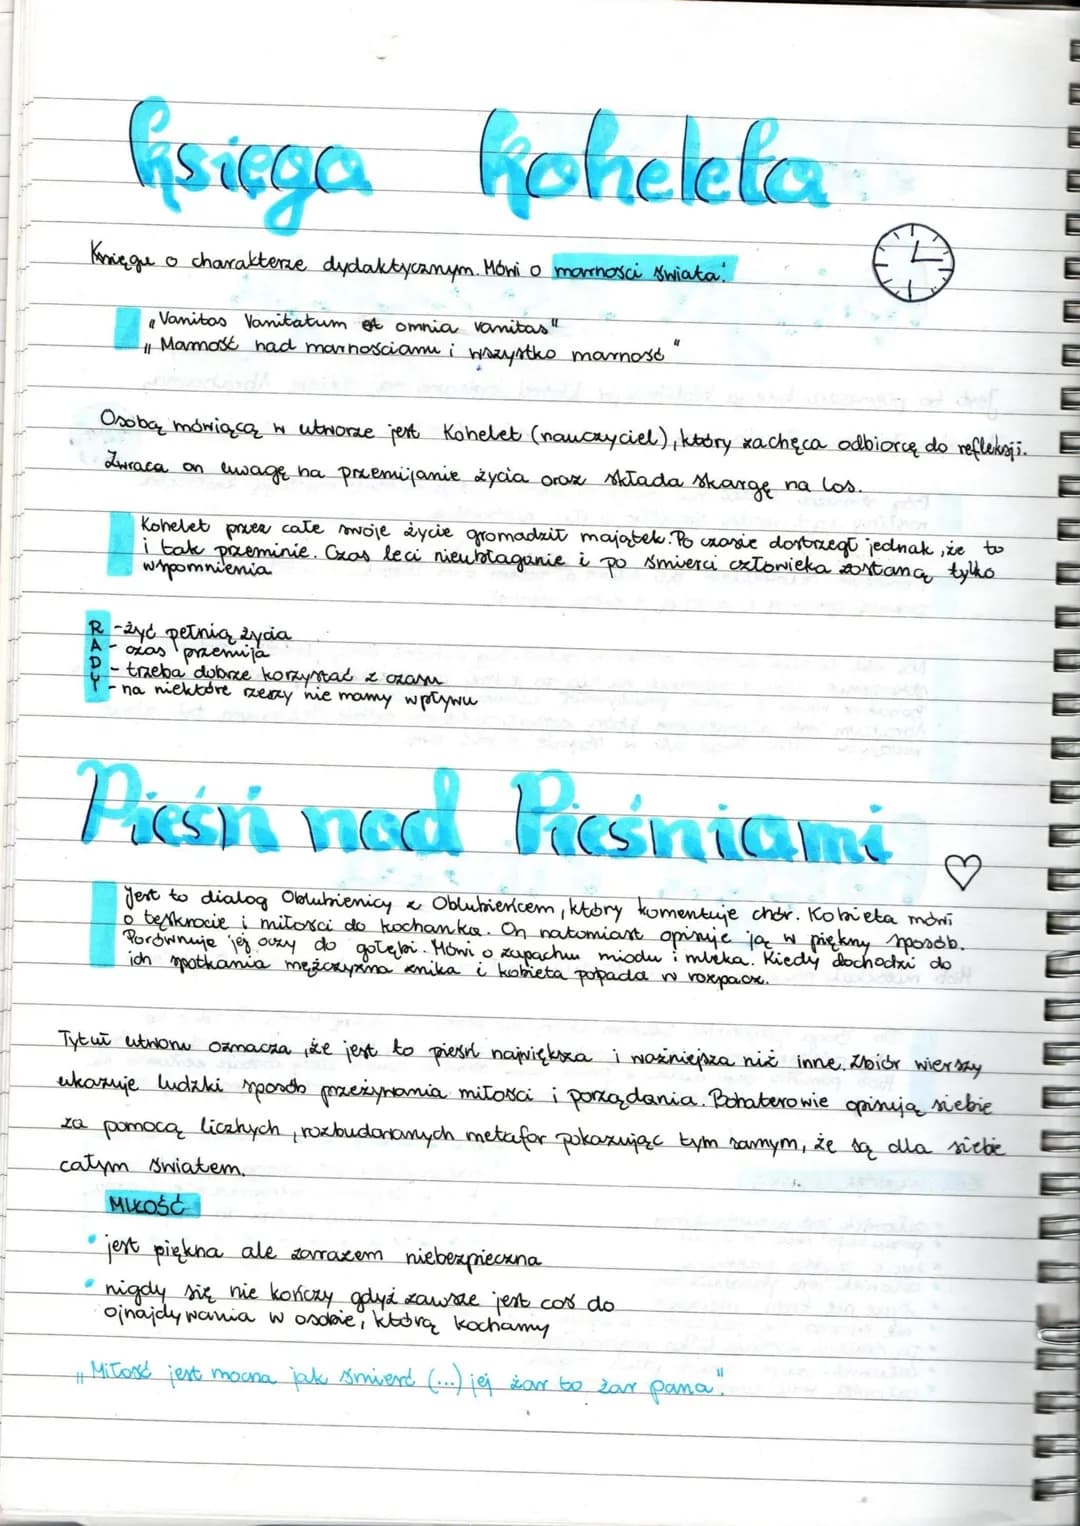 księga koheleta
Księga o charakterze dydaktycznym. Mówi o marności świata:
„Vanitas Vanitatum et omnia vanitas"
„Marność nad marnościami i wszystko marność"
Osobą mówiącą w utworze jest Kohelet (nauczyciel), który zachęca odbiorcę do refleksji.
Zwraca on uwagę na przemijanie życia oraz składa skargę na los.
Kohelet przez całe swoje życie gromadził majątek. Po czasie dostrzegł jednak, że to
i tak przeminie. Czas leci nieubłaganie i po śmierci człowieka zostaną tylko
wspomnienia
RADY
- żyć pełnią życia
- czas przemija
- trzeba dobrze korzystać z czasu
- na niektóre rzeczy nie mamy wpływu
Pieśń nad Pieśniami
Jest to dialog Oblubienicy z Oblubieńcem, który komentuje chór. Kobieta mówi
o tęsknocie i miłości do kochanka. On natomiast opisuje ją w piękny sposób.
Porównuje jej oczy do gołębi. Mówi o zapachu miodu i mleka. Kiedy dochodzi do
ich spotkania mężczyzna znika i kobieta popada w rozpacz.
Tytuł utworu oznacza, że jest to pieśń największa i ważniejsza niż inne. Zbiór wierszy
ukazuje ludzki sposób przeżywania miłości i porządania. Bohaterowie opisują siebie
za pomocą licznych, rozbudowanych metafor pokazując tym samym, że są dla siebie
całym światem.
MIŁOŚĆ
• jest piękna ale zarrazem niebezpieczna
• nigdy się nie kończy gdyż zawsze jest coś do
ojnajdywania w osobie, którą kochamy
„Miłość jest mocna jak śmierć (...) jej żar to żar pana".